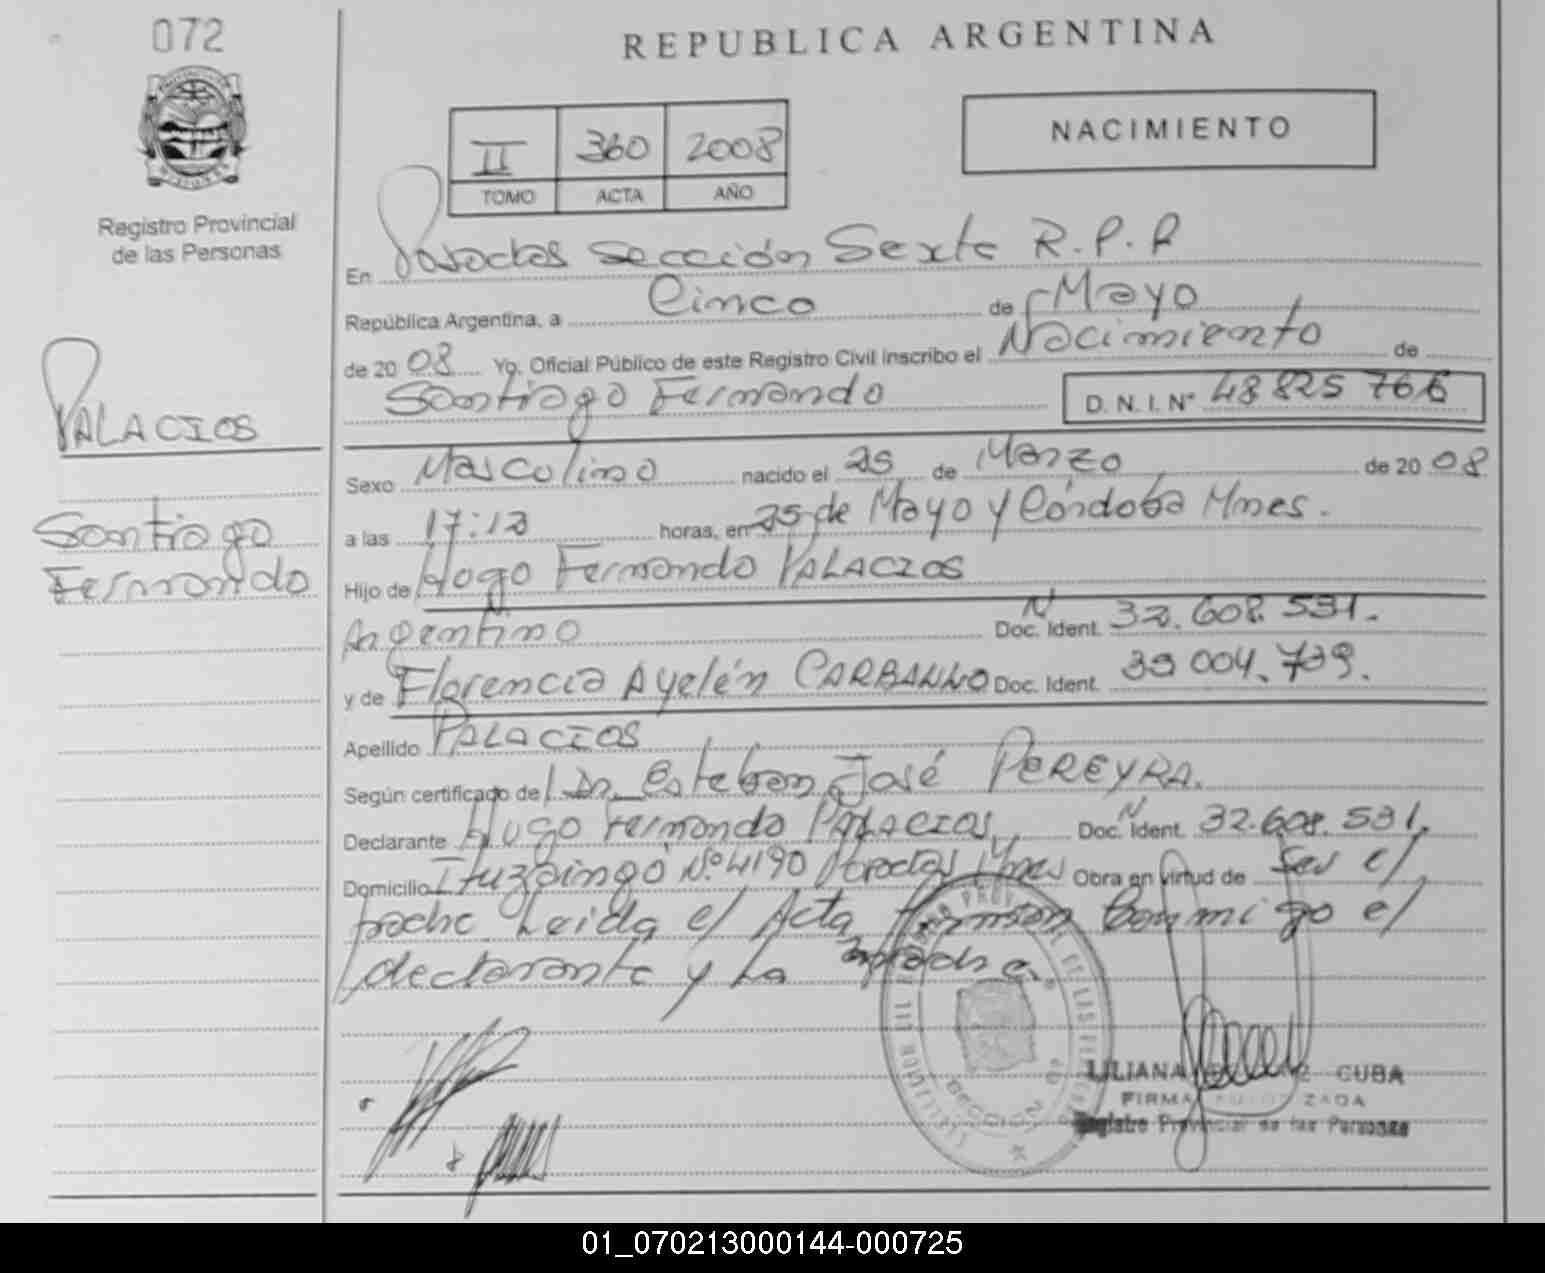 072
REPUBLICA ARGENTINA
NACIMIENTO
II 360 2008
TOMO ACTA AÑO
Registro Provincial
de las Personas
En Posadas Sección Sexta R.P.P
República Argentina, a Cinco de Mayo
de 20 08 Yo, Oficial Público de este Registro Civil inscribo el Nacimiento de
Santiago Fernando D.N.I. Nº 48 825 766
PALACIOS
Santiago
Fernando
Sexo Masculino nacido el 25 de Marzo de 20 08
a las 17:12 horas, en 25 de Mayo y Córdoba Mnes.
Hijo de Hugo Fernando PALACIOS
Argentino Doc. Ident. 32.608.531.
y de Florencia Ayelén Doc. Ident. 39 004.739.
Apellido PALACIOS
Según certificado de Dr. Esteban José PEREYRA.
Declarante Hugo Fernando PALACIOS, Doc. Ident. 32.608.531,
Domicilio Ituzaingó Nº 4190 Posadas Mnes Obra en virtud de Ser el
padre. Leida el Acta firman Conmigo el
declarante y La madre.
SECCION
LILIANA CUBA
FIRMA AUTORIZADA
Registro Provincial de las Personas
01_070213000144-000725